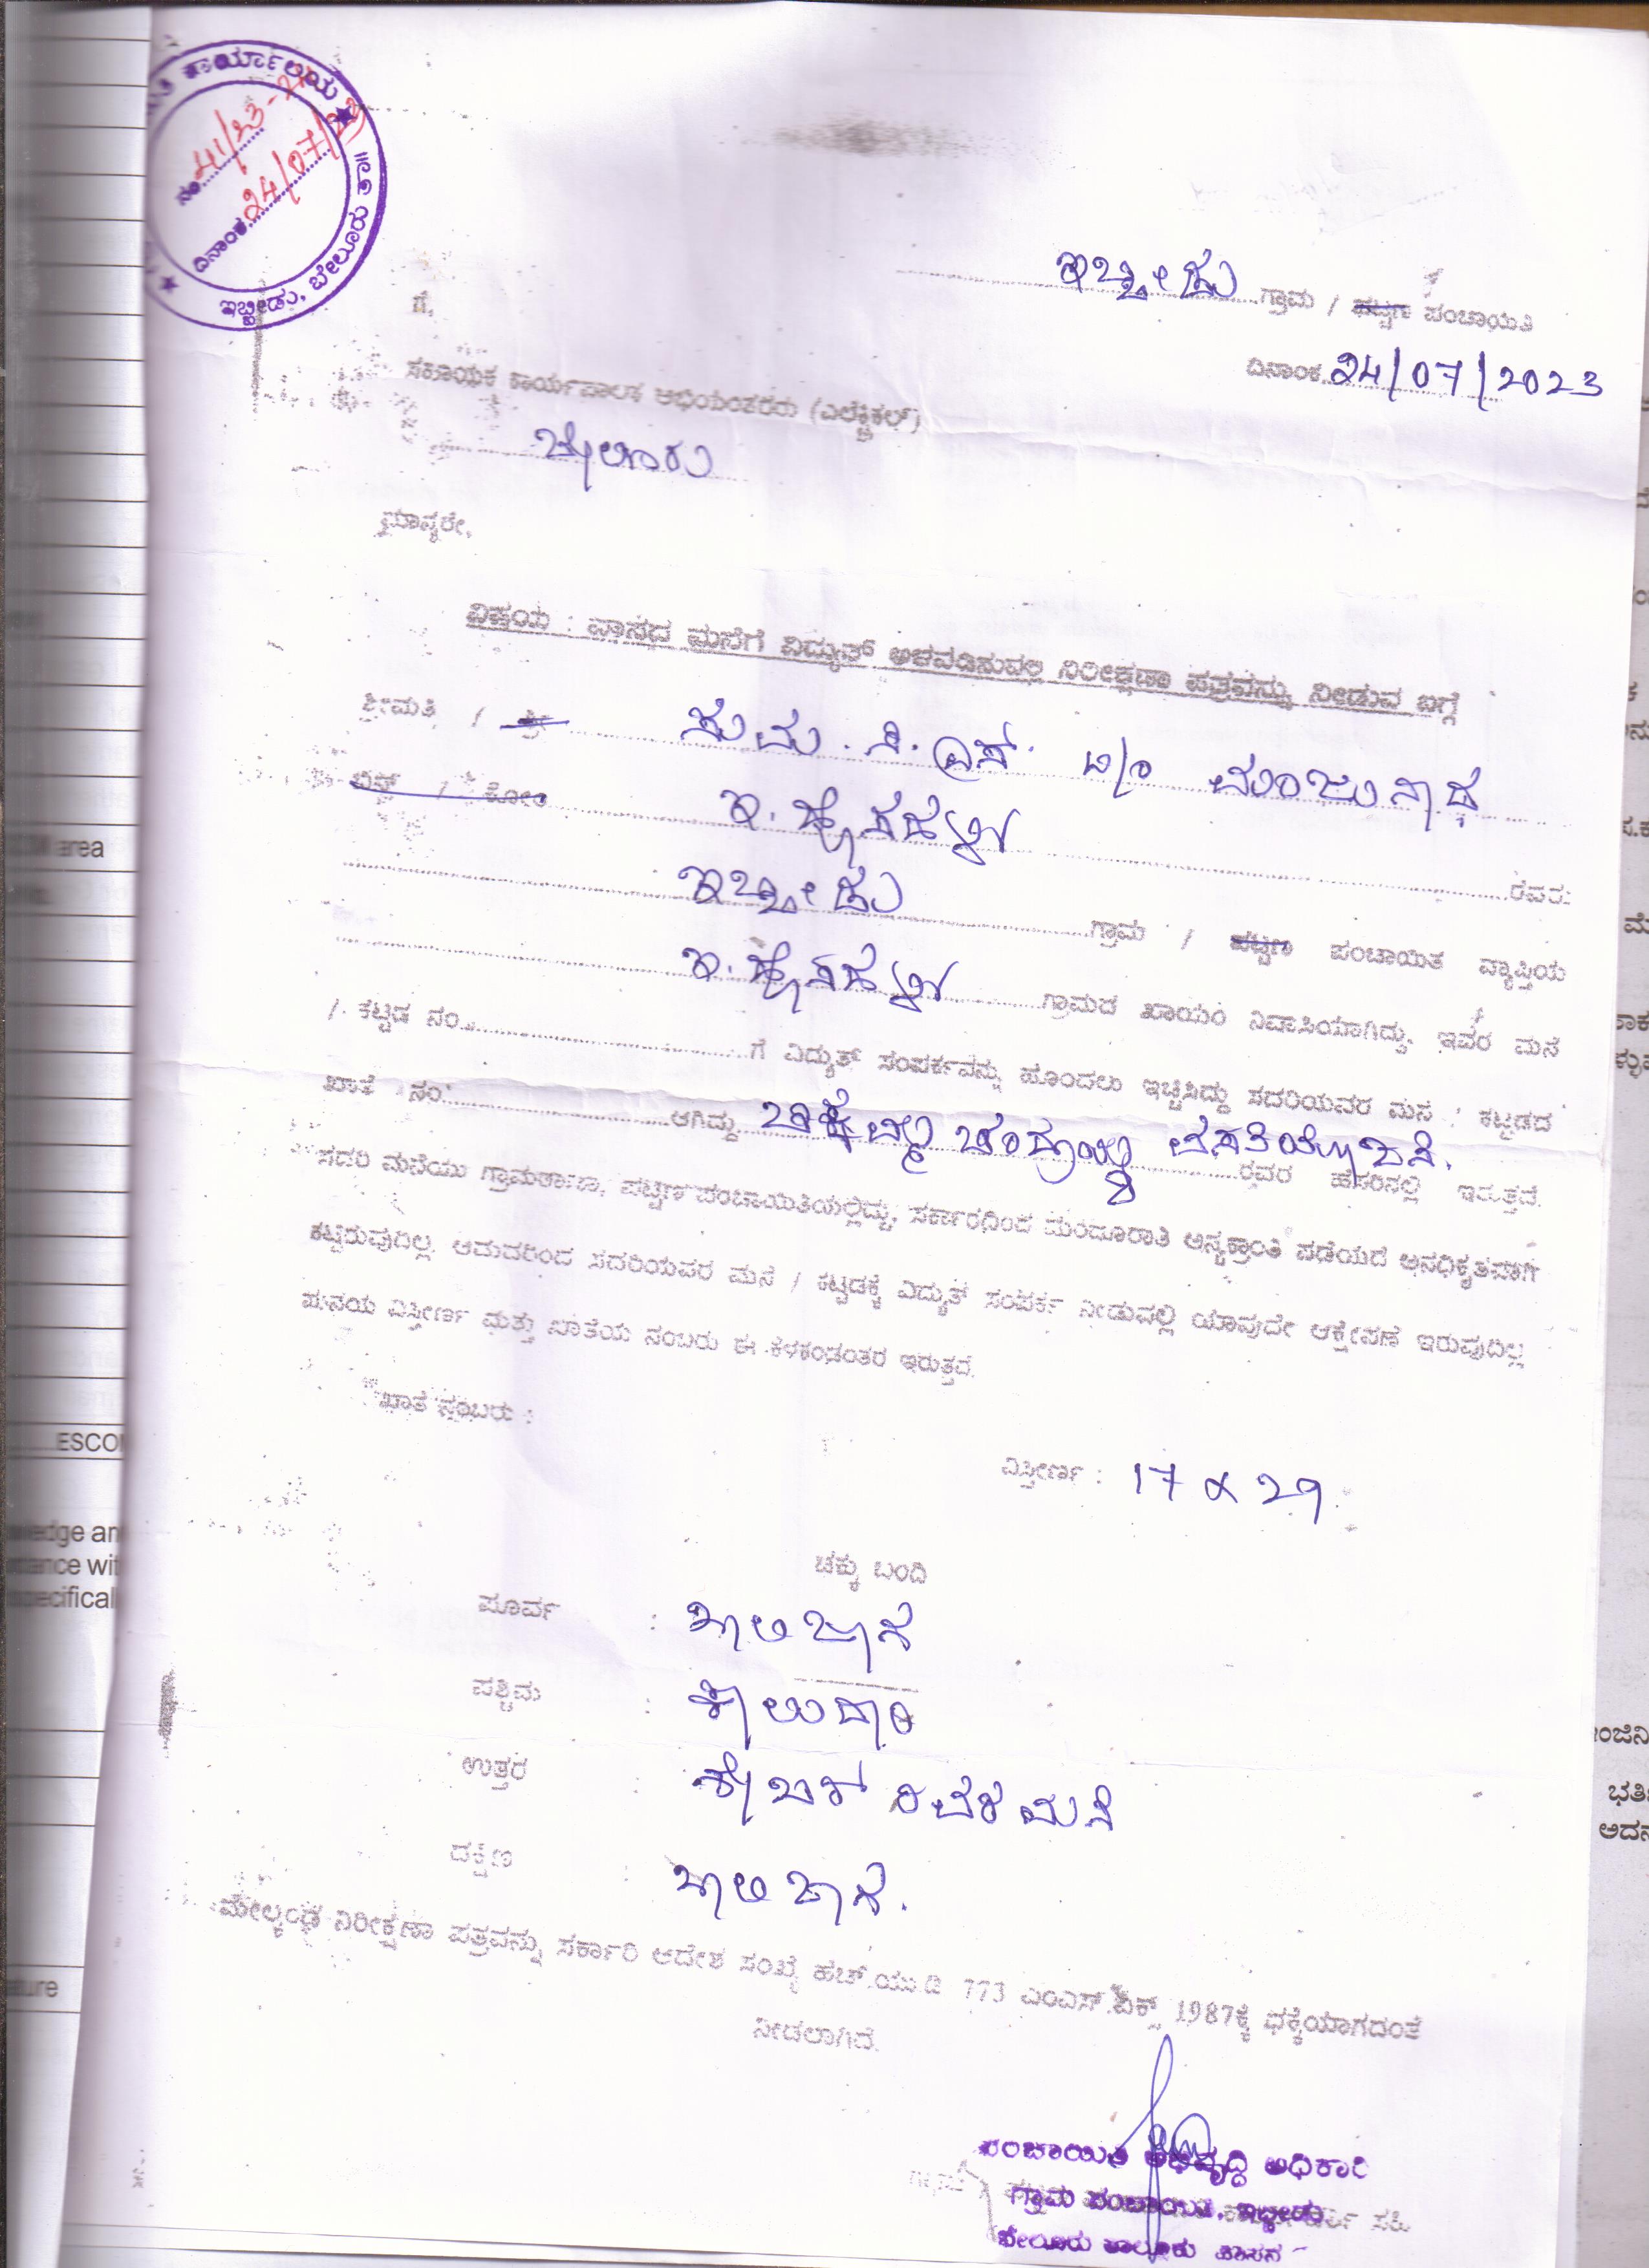 ಕಾರ್ಯಾಲಯ ★
ನಂ. 41/23-24
ದಿನಾಂಕ. 24/07/23
★ ಇಬ್ಬೀಡು, ಬೇಲೂರು ತಾ॥
ಇಬ್ಬೀಡು ಗ್ರಾಮ / ಪಟ್ಟಣ ಪಂಚಾಯತಿ
ದಿನಾಂಕ 24/07/2023
ಗೆ,
ಸಹಾಯಕ ಕಾರ್ಯಪಾಲಕ ಅಭಿಯಂತರರು (ಎಲೆಕ್ಟ್ರಿಕಲ್)
ಬೇಲೂರು
ಮಾನ್ಯರೇ,
ವಿಷಯ : ವಾಸದ ಮನೆಗೆ ವಿದ್ಯುತ್ ಅಳವಡಿಸುವಲ್ಲಿ ನಿರೀಕ್ಷಣಾ ಪತ್ರವನ್ನು ನೀಡುವ ಬಗ್ಗೆ
ಶ್ರೀಮತಿ / ಶ್ರೀ ಸುಮ. ಸಿ. ಎಸ್. W/o ಮಂಜುನಾಥ
ಬಿನ್ / ಕೋಂ ಇ. ಹೊಸಹಳ್ಳಿ ರವರು
ಇಬ್ಬೀಡು ಗ್ರಾಮ / ಪಟ್ಟಣ ಪಂಚಾಯಿತಿ ವ್ಯಾಪ್ತಿಯ
ಇ. ಹೊಸಹಳ್ಳಿ ಗ್ರಾಮದ ಖಾಯಂ ನಿವಾಸಿಯಾಗಿದ್ದು, ಇವರ ಮನೆ
/ ಕಟ್ಟಡ ನಂ. ಗೆ ವಿದ್ಯುತ್ ಸಂಪರ್ಕವನ್ನು ಹೊಂದಲು ಇಚ್ಛಿಸಿದ್ದು ಸದರಿಯವರ ಮನೆ / ಕಟ್ಟಡದ
ಖಾತೆ ನಂ ಆಗಿದ್ದು ರವರ ಹೆಸರಿನಲ್ಲಿ ಇರುತ್ತದೆ.
ಸದರಿ ಮನೆಯು ಗ್ರಾಮಠಾಣಾ, ಪಟ್ಟಣ ಪಂಚಾಯಿತಿಯಲ್ಲಿದ್ದು, ಸರ್ಕಾರದಿಂದ ಮಂಜೂರಾತಿ ಅನ್ಯಕ್ರಾಂತಿ ಪಡೆಯದೆ ಅನಧಿಕೃತವಾಗಿ
ಕಟ್ಟಿರುವುದಿಲ್ಲ. ಆದುದರಿಂದ ಸದರಿಯವರ ಮನೆ / ಕಟ್ಟಡಕ್ಕೆ ವಿದ್ಯುತ್ ಸಂಪರ್ಕ ನೀಡುವಲ್ಲಿ ಯಾವುದೇ ಆಕ್ಷೇಪಣೆ ಇರುವುದಿಲ್ಲ
ಮನೆಯ ವಿಸ್ತೀರ್ಣ ಮತ್ತು ಖಾತೆಯ ನಂಬರು ಈ ಕೆಳಕಂಡಂತೆ ಇರುತ್ತದೆ.
ಖಾತೆ ನಂಬರು :
ವಿಸ್ತೀರ್ಣ : 17 x 29
ಚಕ್ಕು ಬಂದಿ
ಪೂರ್ವ : ಖಾಲಿ ಜಾಗ
ಪಶ್ಚಿಮ : ಕಾಲುದಾರಿ
ಉತ್ತರ : ಶೇಖರ್ ರವರ ಮನೆ
ದಕ್ಷಿಣ : ಖಾಲಿ ಜಾಗ.
ಮೇಲ್ಕಂಡ ನಿರೀಕ್ಷಣಾ ಪತ್ರವನ್ನು ಸರ್ಕಾರಿ ಆದೇಶ ಸಂಖ್ಯೆ ಹೆಚ್.ಯು.ಡಿ 773 ಎಂಎಸ್.ಎಕ್ಸ್ 1987ಕ್ಕೆ ಧಕ್ಕೆಯಾಗದಂತೆ
ನೀಡಲಾಗಿದೆ.
ಪಂಚಾಯಿತಿ ಅಭಿವೃದ್ಧಿ ಅಧಿಕಾರಿ
ಗ್ರಾಮ ಪಂಚಾಯಿತಿ, ಇಬ್ಬೀಡು
ಬೇಲೂರು ತಾಲ್ಲೂಕು ಹಾಸನ
area
ESCOM
specifical